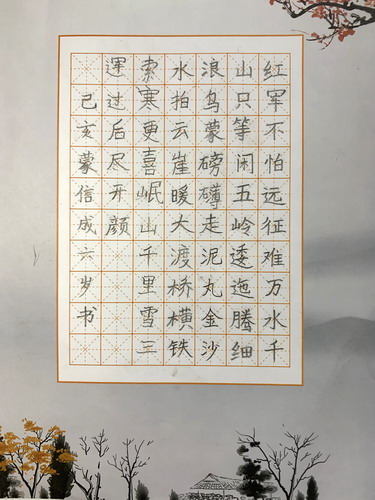 红军不怕远征难万水千
山只等闲五岭逶迤腾细
浪乌蒙磅礴走泥丸金沙
水拍云崖暖大渡桥横铁
索寒更喜岷山千里雪三
过后尽开颜
己亥蒙信成六岁书